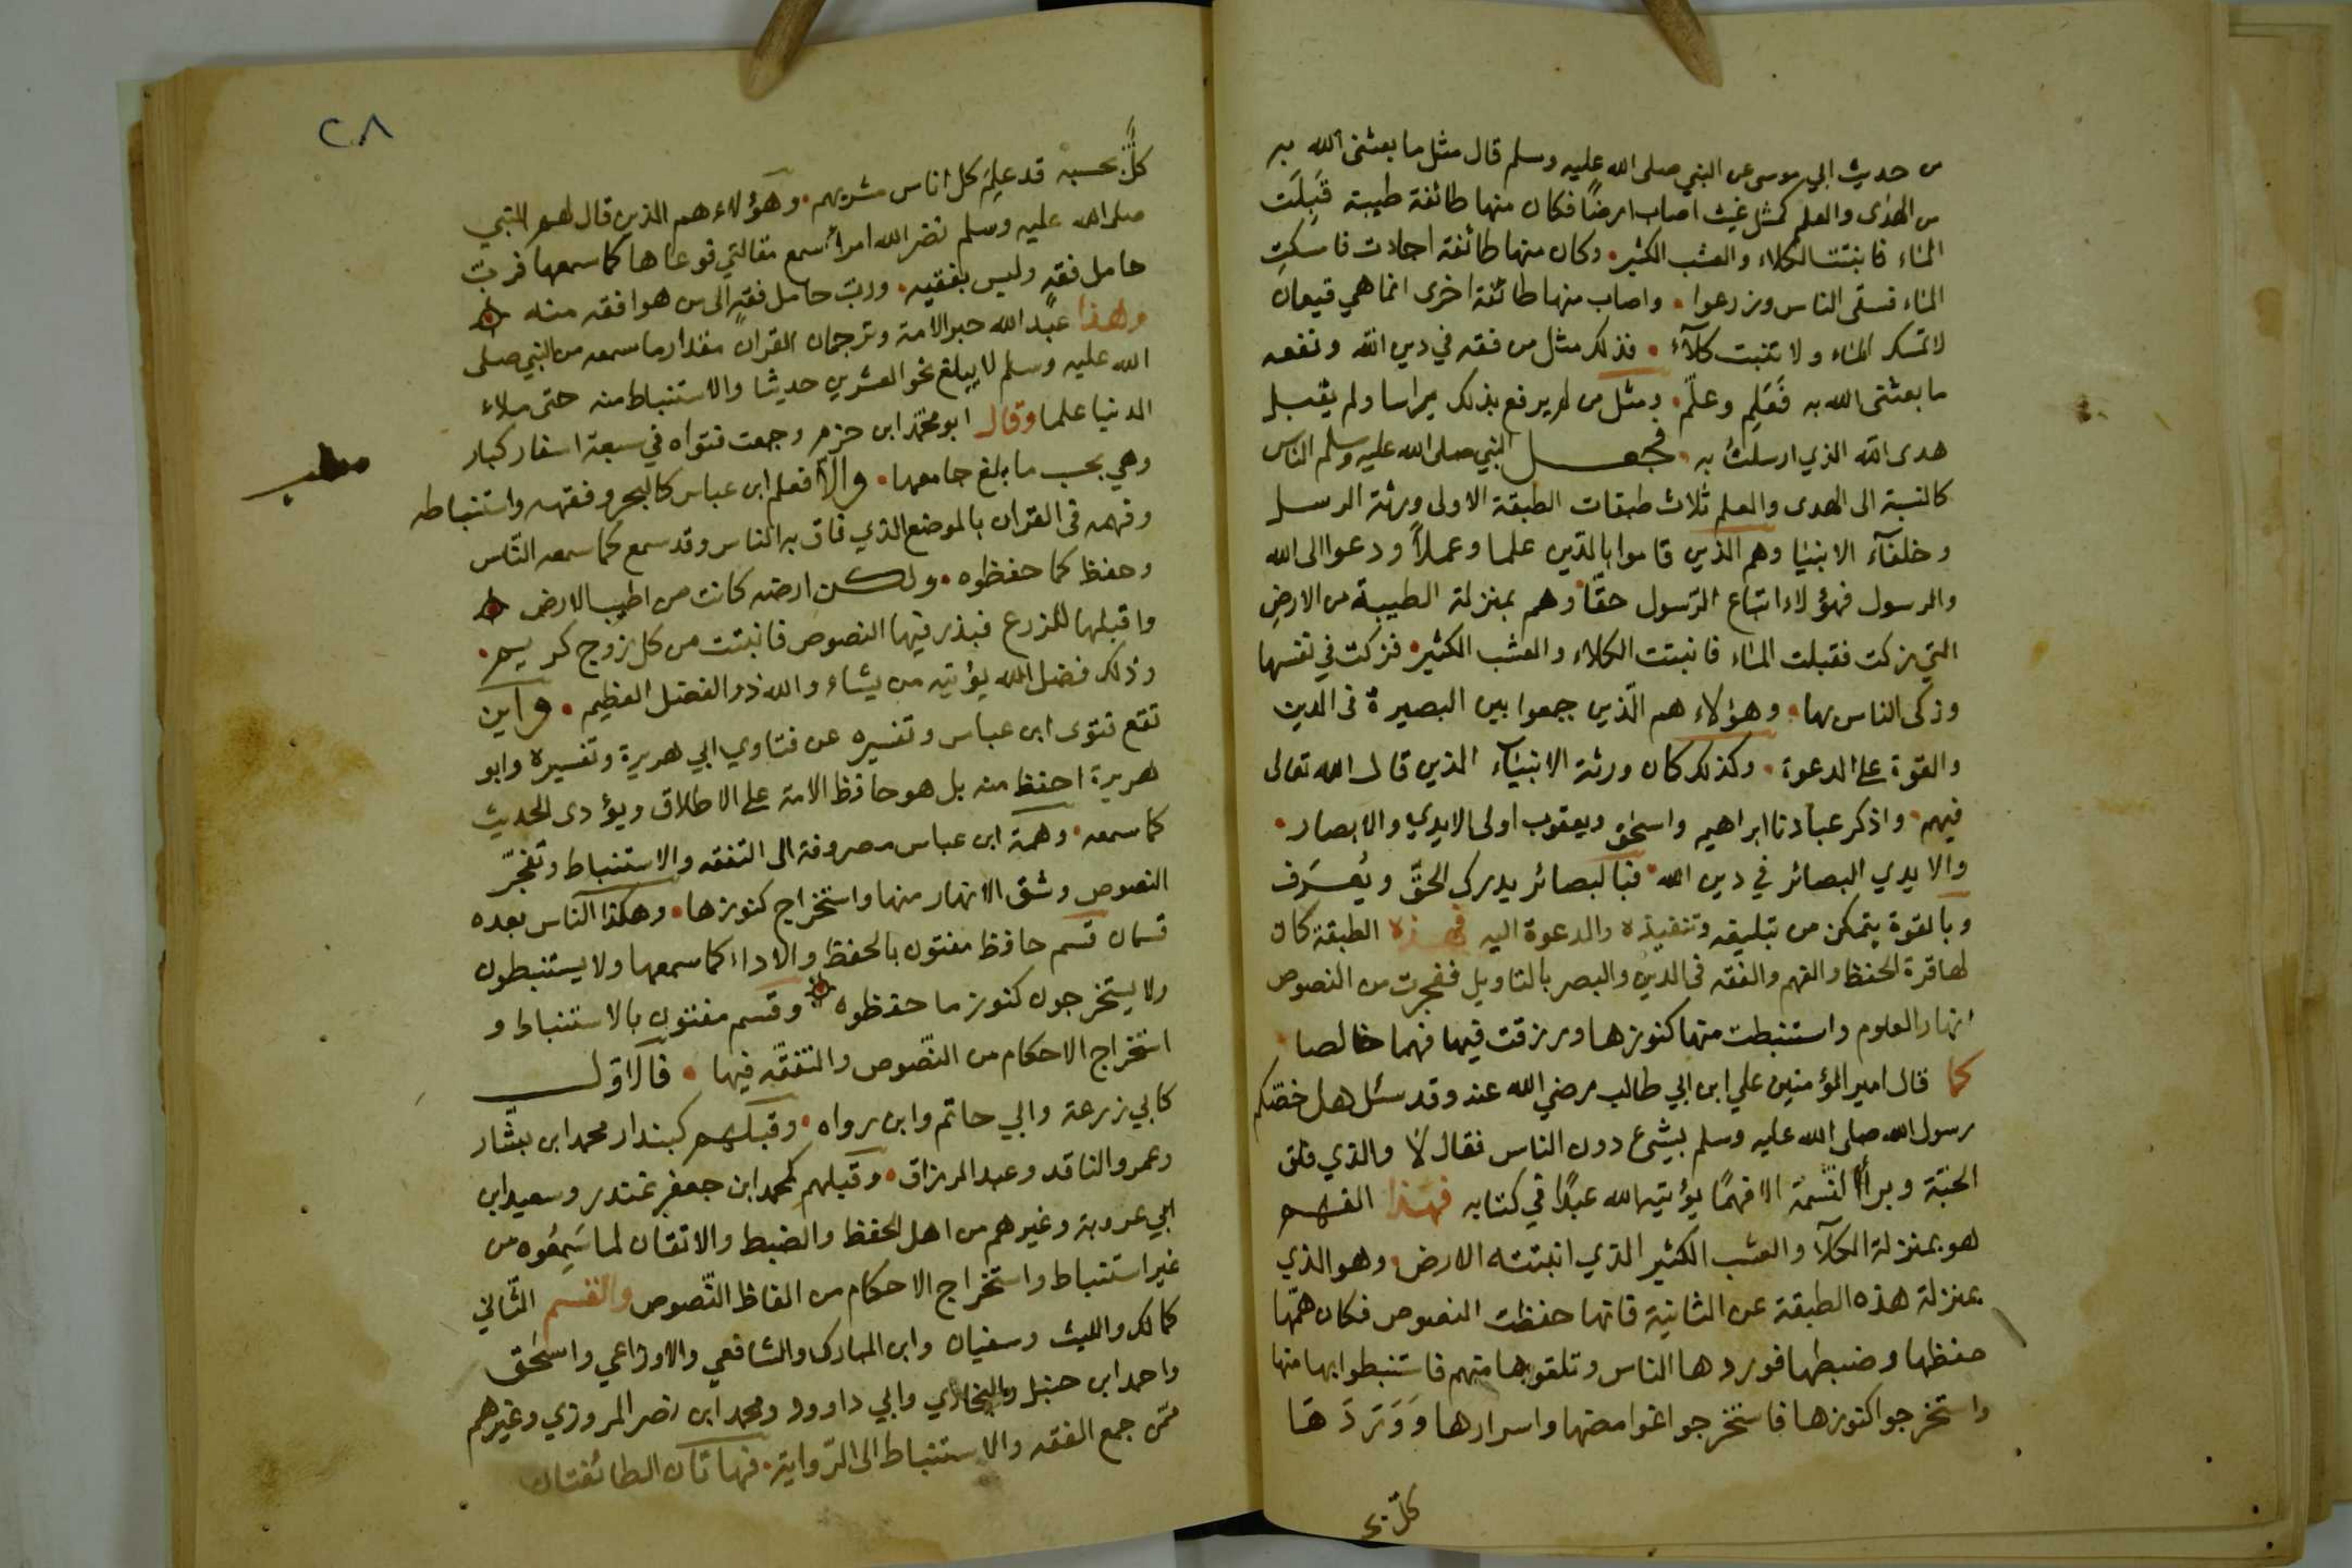 من حديث ابي موسى عن النبي صلى الله عليه وسلم قال مثل ما بعثنى الله به
من الهدى والعلم كمثل غيث اصاب ارضًا فكان منها طائفة طيبة قَبِلَت
الماء فانبتت الكلاء والعشب الكثير. وكان منها طائفة اجادت فامسكت
الماء فسقى الناس وزرعوا. واصاب منها طائفة اخرى انما هي قيعان
لا تمسك الماء ولا تنبت كلآء. فذلك مثل من فقه في دين الله ونفعه
ما بعثنى الله به فَعَلِم وعلّم. ومثل من لم يرفع بذلك راسا ولم يقبل
هدى الله الذي ارسلت به. فجعل النبي صلى الله عليه وسلم الناس
كالنسبة الى الهدى والعلم ثلاث طبقات الطبقة الاولى ورثة الرسل
وخلفآء الانبيا وهم الذين قاموا بالدّين علما وعملاً ودعوا الى الله
والرسول فهؤلاء اتباع الرّسول حقّا وهم بمنزلة الطيبة من الارض
التي زكت فقبلت الماء فانبتت الكلاء والعشب الكثير. فزكت في نفسها
وزكى الناس بها. وهؤلاء هم الّذين جمعوا بين البصيرة فى الدين
والقوة على الدعوة. وكذلك كان ورثة الانبيآء الذين قال الله تعالى
فيهم. واذكر عبادنا ابراهيم واسحٰق ويعقوب اولى الايدي والابصار.
والايدي البصائر في دين الله. فبالبصائر يدرك الحقّ ويُعرَف
وبالقوة يتمكن من تبليغه وتنفيذه والدعوة اليه فهذه الطبقة كان
لها قرة الحفظ والفهم والفقه فى الدين والبصر بالتاويل ففجرت من النصوص
انهار العلوم واستنبطت منها كنوزها ورزقت فيها فهما خالصا
كما قال امير المؤمنين علي ابن ابي طالب رضي الله عنه وقد سئل هل خصّكم
رسول الله صلى الله عليه وسلم بشئ دون الناس فقال لا والذي فلق
الحبّة وبرأ النّسمة الا فهمًا يؤتيه الله عبدًا في كتابه فهذا الفهم
هو بمنزلة الكلآ والعشب الكثير الذي انبتته الارض. وهو الذي
بمنزلة هذه الطبقة عن الثانية فانها حفظت النصوص فكان همّها
حفظها وضبطها فوردها الناس وتلقوها منهم فاستنبطوا بها منها
واستخرجوا كنوزها فاستخرجوا غوامضها واسرارها وَوَرَدَهَا
كلّ بح
٢٨
كلٌّ بحسبه قد علِمَ كل اناس مشربهم. وهؤلاء هم الذين قال لهم النبي
صلى الله عليه وسلم نضر الله امرأ سمع مقالتي فوعاها كما سمعها فربّ
حامل فقهٍ وليس بفقيه. وربّ حامل فقهٍ الى من هو افقه منه
وهذا عبد الله حبر الامة وترجمان القران مقدار ما سمعه من النبي صلى
الله عليه وسلم لا يبلغ نحو العشرين حديثا والاستنباط منه حتى ملاء
الدنيا علما وقال ابو محمّد ابن حزم وجمعت فتواه في سبعة اسفار كبار
وهي بحسب ما بلغ جامعها. والاّ فعلم ابن عباس كالبحر وفقهه واستنباطه
مطلب
وفهمه فى القران بالموضع الذي فاق به الناس وقد سمع كما سمعه النّاس
وحفظ كما حفظوه. ولكن ارضه كانت من اطيب الارض
واقبلها للزرع فبذر فيها النصوص فانبتت من كل زوج كريم.
وذلك فضل الله يؤتيه من يشاء والله ذو الفضل العظيم. واين
تقع فتوى ابن عباس وتفسيره عن فتاوي ابي هريرة وتفسيره وابو
هريرة احفظ منه بل هو حافظ الامة على الاطلاق ويؤدى الحديث
كما سمعه. وهمة ابن عباس مصروفة الى التفقه والاستنباط وتفجّر
النصوص وشق الانهار منها واستخراج كنوزها. وهكذا الناس بعده
قسمان قسم حافظ مفتون بالحفظ والاداء كما سمعها ولا يستنبطون
ولا يستخرجون كنوز ما حفظوه وقسم مفتون بالاستنباط و
استخراج الاحكام من النّصوص والتفقّه فيها. فالاول
كابي زرعة وابي حاتم وابن رواه. وقبلهم كبندار محمد ابن بشّار
وعمرو الناقد وعبد الرزاق. وقبلهم كمحمد ابن جعفر غندر وسعيد ابن
ابي عروبة وغيرهم من اهل الحفظ والضبط والاتقان لما سَمِعُوه من
غير استنباط واستخراج الاحكام من الفاظ النّصوص والقسم الثّاني
كمالك والليث وسفيان وابن المبارك والشافعي والاوزاعي واسحٰق
واحمد ابن حنبل والبخاري وابي داوود ومحمد ابن نصر المروزي وغيرهم
ممّن جمع الفقه والاستنباط الى الرّواية. فهاتان الطائفتان